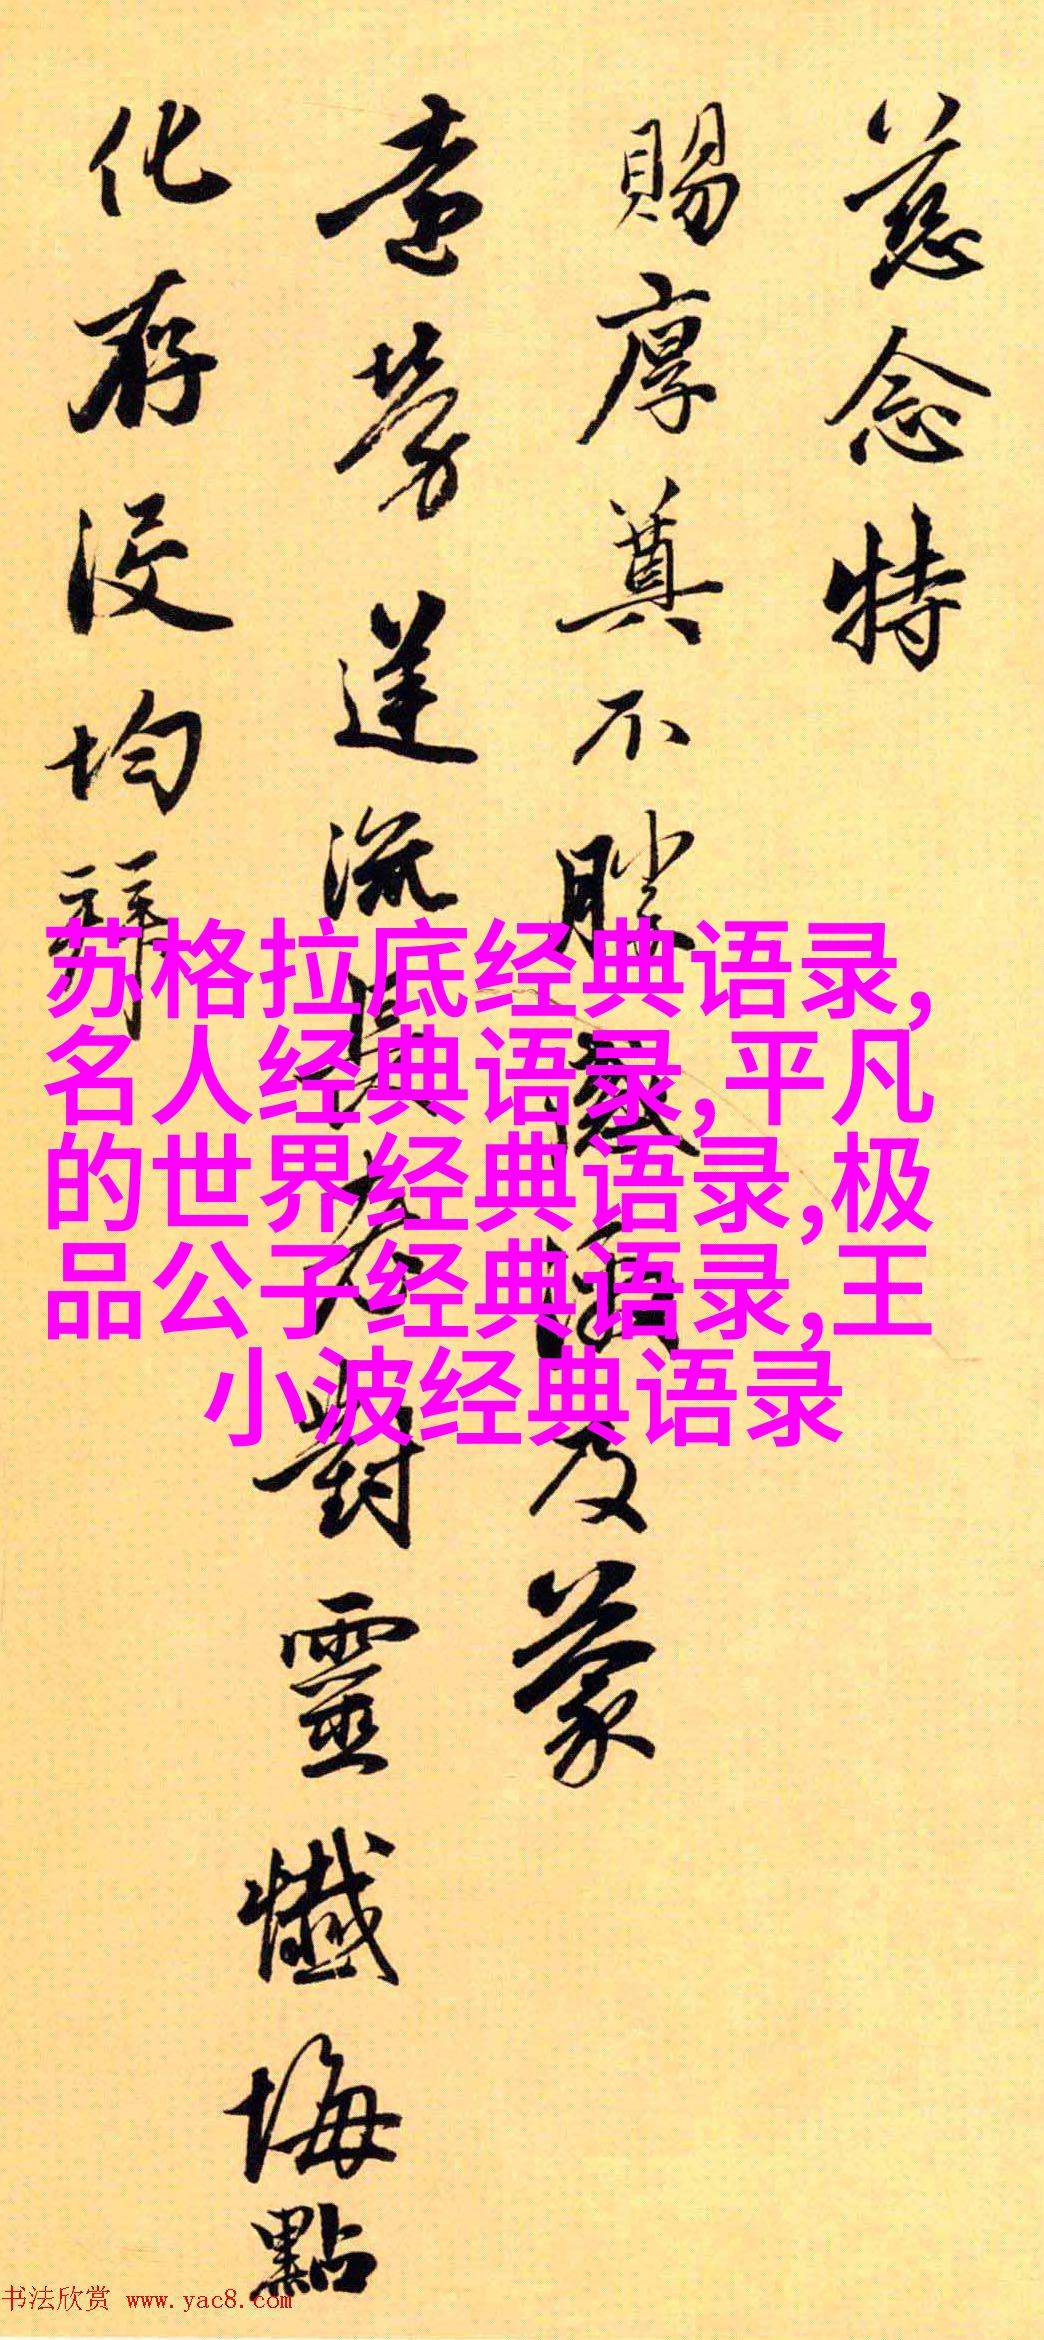 慈念特
賜厚奠不勝感及蒙
遠勞流長老對靈懺悔點
化存没均拜
苏格拉底经典语录,
名人经典语录,平凡
的世界经典语录,极
品公子经典语录,王
小波经典语录
书法欣赏 www.yac8.com